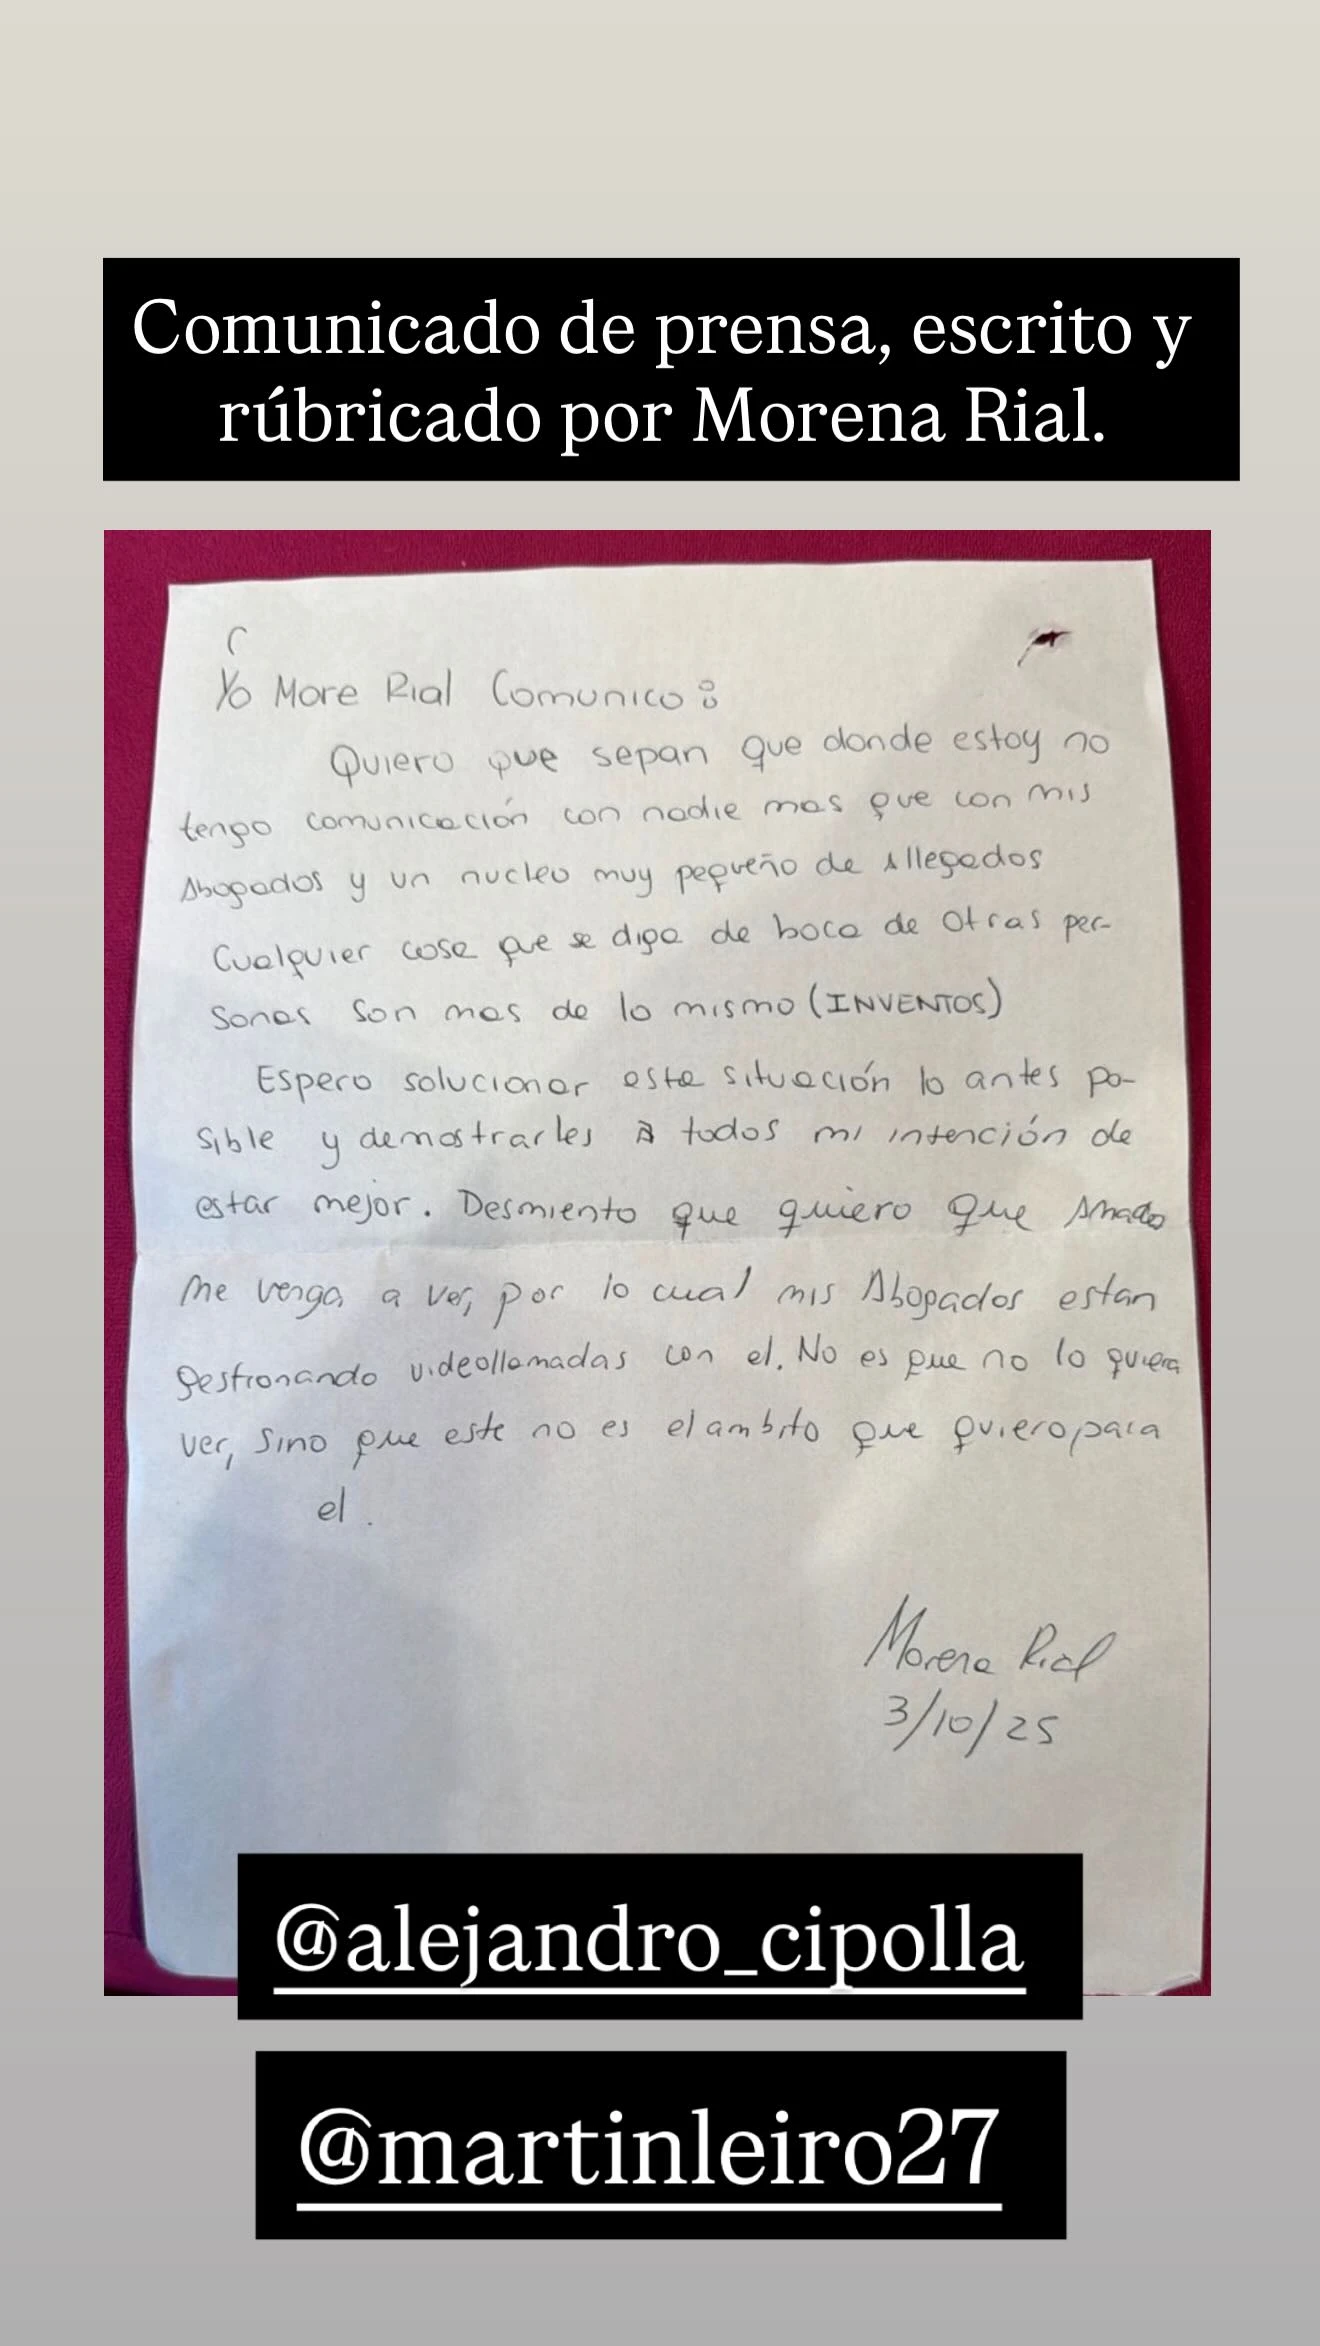 Comunicado de prensa, escrito y
rúbricado por Morena Rial.
Yo More Rial Comunico:
Quiero que sepan que donde estoy no
tengo comunicación con nadie mas que con mis
Abogados y un nucleo muy pequeño de Allegados
Cualquier cosa que se diga de boca de otras per-
sonas son mas de lo mismo (INVENTOS)
Espero solucionar esta situación lo antes po-
sible y demostrarles A todos mi intención de
estar mejor. Desmiento que quiero que Amado
me venga a ver, por lo cual mis Abogados estan
gestionando videollamadas con el. No es que no lo quiera
ver, sino que este no es el ambito que quiero para
el.
Morena Rial
3/10/25
@alejandro_cipolla
@martinleiro27